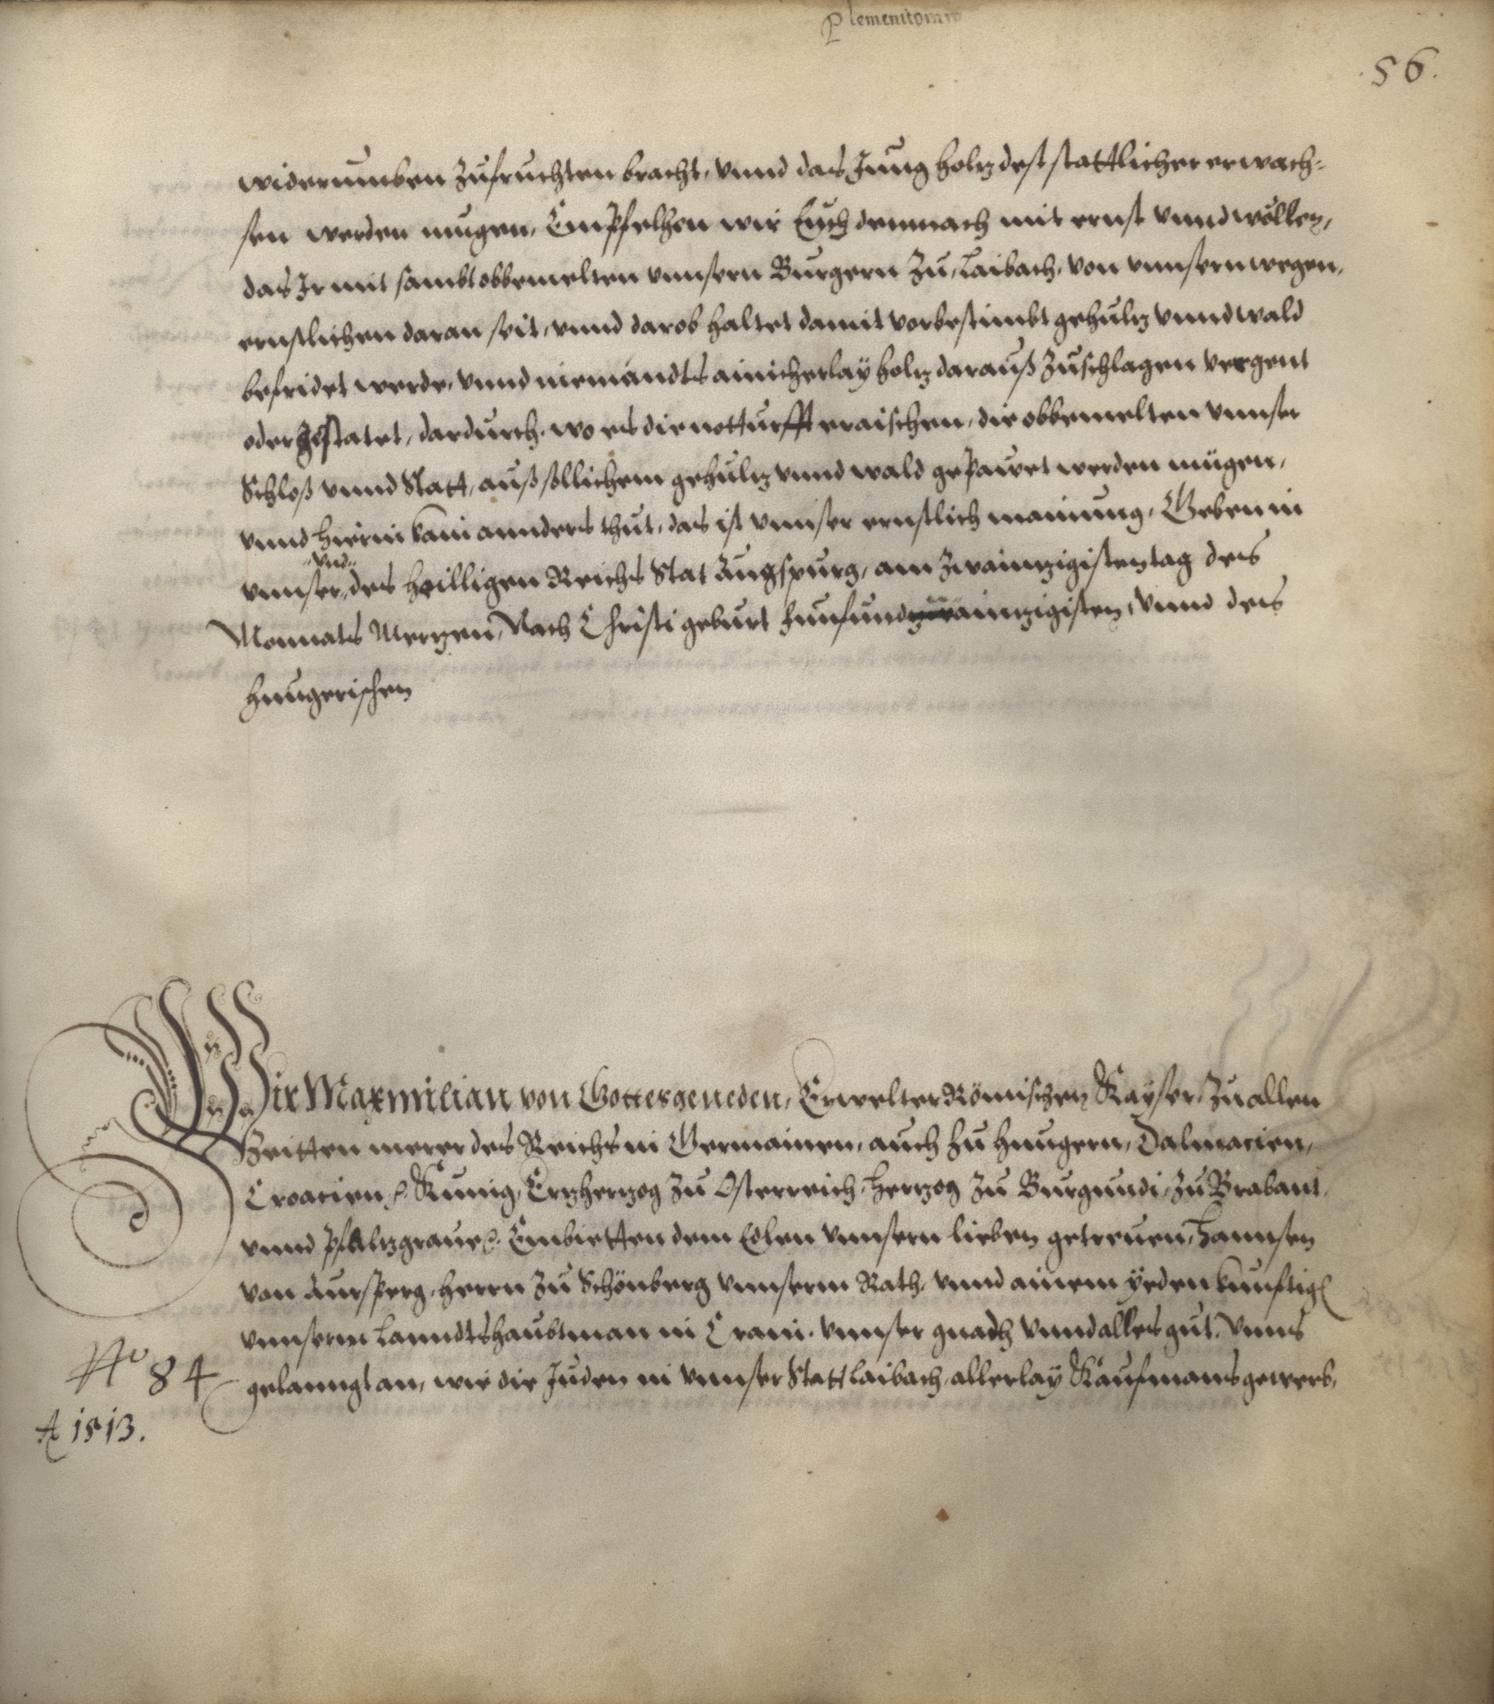 Plementom
56.
widerumben zufruchten bracht, vnnd das Jung holtz dest stattlicher erwach-
sen werden mugen, Empfelhen wir Euch demnach mit ernst vnnd wöllen,
das Ir mit sambt obbemelten vnnsern Burgern zu Laibach, von vnnsern wegen,
ernstlichen daran seit, vnnd darob haltet damit vorbestimbt gehültz vnnd wald
befridet werde, vnnd niemandts ainicherlay holtz darauß zuschlagen vergent
oder gestatet, dardurch, wo es die notturfft eraischen, die obbemelten vnnser
Schloß vnnd Statt, auß sollichem gehültz vnnd wald gepawet werden mügen,
vnnd hierin kain annders thut, das ist vnnser ernstlich mainung, Geben in
vnnser, vnd des heilligen Reichs Stat Augspurg, am zwaintzigisten tag des
Monnats Mertzen, Nach Christi geburt funfund zwaintzigisten, vnnd des
hungerischen
Wir Maxmilian von Gottes geneden, Erwelter Römischen Kayser, zu allen
Zeitten merer des Reichs in Germainen, auch zu hungern, Dalmacien,
Croacien, Kunig, Ertzhertzog zu Osterreich, Hertzog zu Burgundi, zu Brabant,
vnnd Pfaltzgraue, Embietten dem Edlen vnnsern lieben getreuen, Hannsen
von Aursperg, herrn zu Schönberg vnnserm Rath, vnnd ainem yeden kunftig
vnnserm Lanndtshaubtman in Crain, vnnser gnadt vnnd alles gut. Vnns
gelanngt an, wie die Juden in vnnser Statt Laibach, allerlay Kaufmans gewerb,
No 84
A 1513.